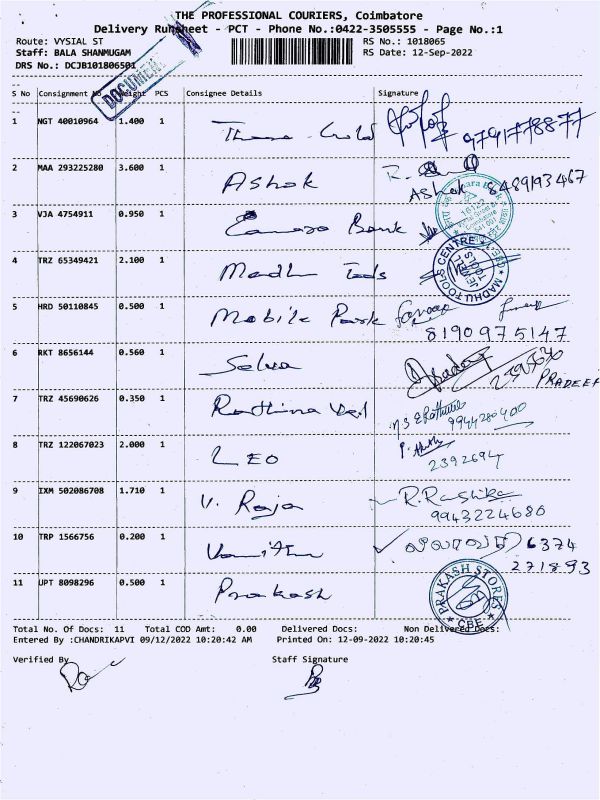 THE PROFESSIONAL COURIERS, Coimbatore
Delivery Runsheet - PCT - Phone No.:0422-3505555 - Page No.:1
Route: VYSIAL ST RS No.: 1018065
Staff: BALA SHANMUGAM RS Date: 12-Sep-2022
DRS No.: DCJB101806501
DOCUMENT
S No Consignment No Weight PCS Consignee Details Signature
1 NGT 40010964 1.400 1 Gold 9791778877
2 MAA 293225280 3.600 1 Ashok R.
Ashok 8489193467
3 VJA 4754911 0.950 1 Canara Bank
4 TRZ 65349421 2.100 1 Madhu Tools MADHU TOOLS CENTRE CBE
5 HRD 50110845 0.500 1 Mobile Park
8190975147
6 RKT 8656144 0.560 1 Selva
PRADEEP
7 TRZ 45690626 0.350 1 Rathina Vel
9944280400
8 TRZ 122067023 2.000 1 LEO
2392694
9 IXM 502086708 1.710 1 V. Raja R. Rashika
9943224680
10 TRP 1566756 0.200 1 6374
271893
11 UPT 8098296 0.500 1 Prakash PRAKASH STORES CBE
Total No. Of Docs: 11 Total COD Amt: 0.00 Delivered Docs: Non Delivered Docs:
Entered By :CHANDRIKAPVI 09/12/2022 10:20:42 AM Printed On: 12-09-2022 10:20:45
Verified By Staff Signature